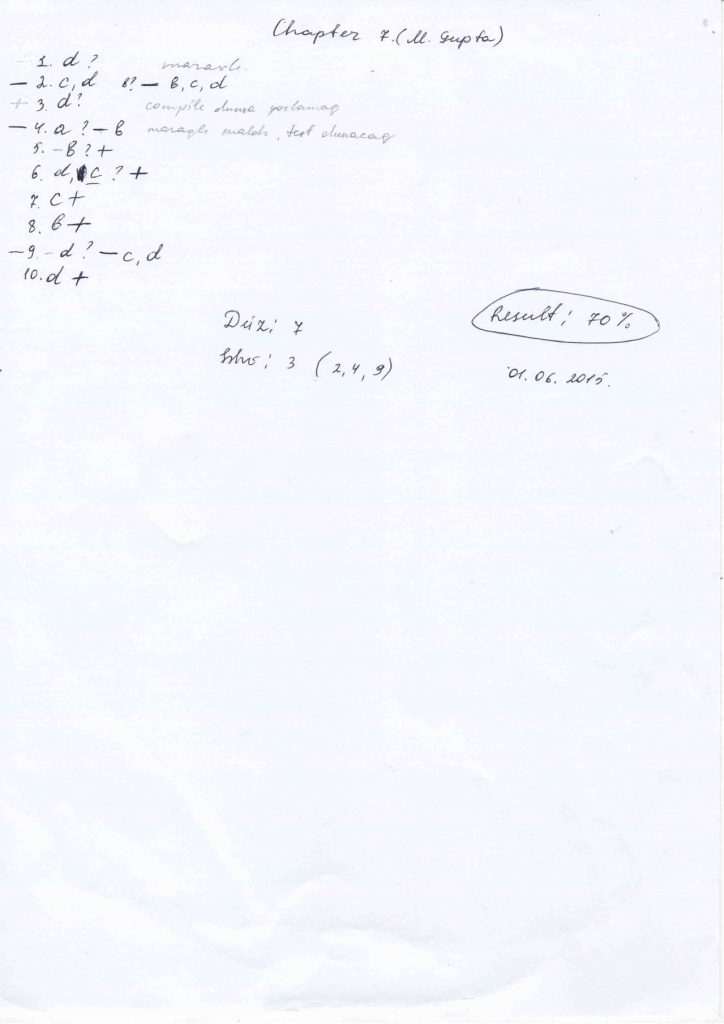 Chapter 7. (M. Gupta)
1. d ? maraqlı.
– 2. c, d b? – b, c, d
+ 3. d? compile olunsa yoxlamaq
– 4. a ? – b maraqlı sualdı, test olunacaq
5. – b ? +
6. d, c ? +
7. c +
8. b +
– 9. – d ? – c, d
10. d +
Düz: 7
Səhv: 3 (2, 4, 9)
Result: 70%
01.06.2015.